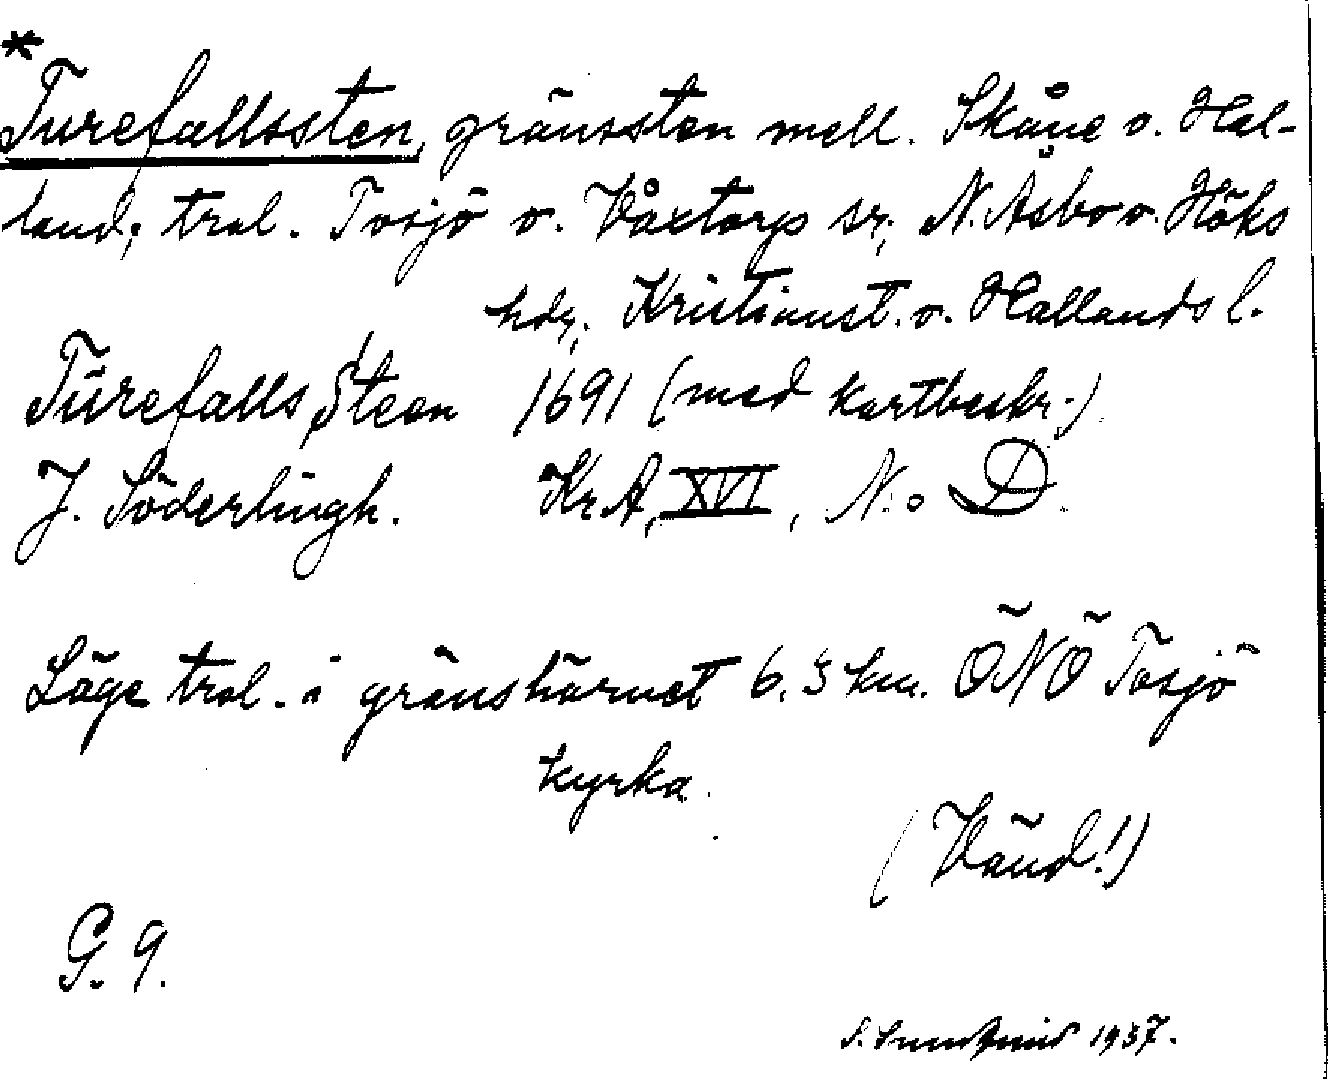 *
Turefallssten, gränssten mell. Skåne o. Hal-
land; trol. Tosjö o. Våxtorps sr; N. Åsbo o. Höks
hdr; Kristianst. o. Hallands l.
Türefalls Steen 1691 (med kartbeskr.)
J. Söderlingh. Kr A, XVI, N:o D.
Läge trol. i gränshörnet 6.5 km. ÖNÖ Tosjö
kyrka.
(Vänd!)
G. 9.
S. 1937.